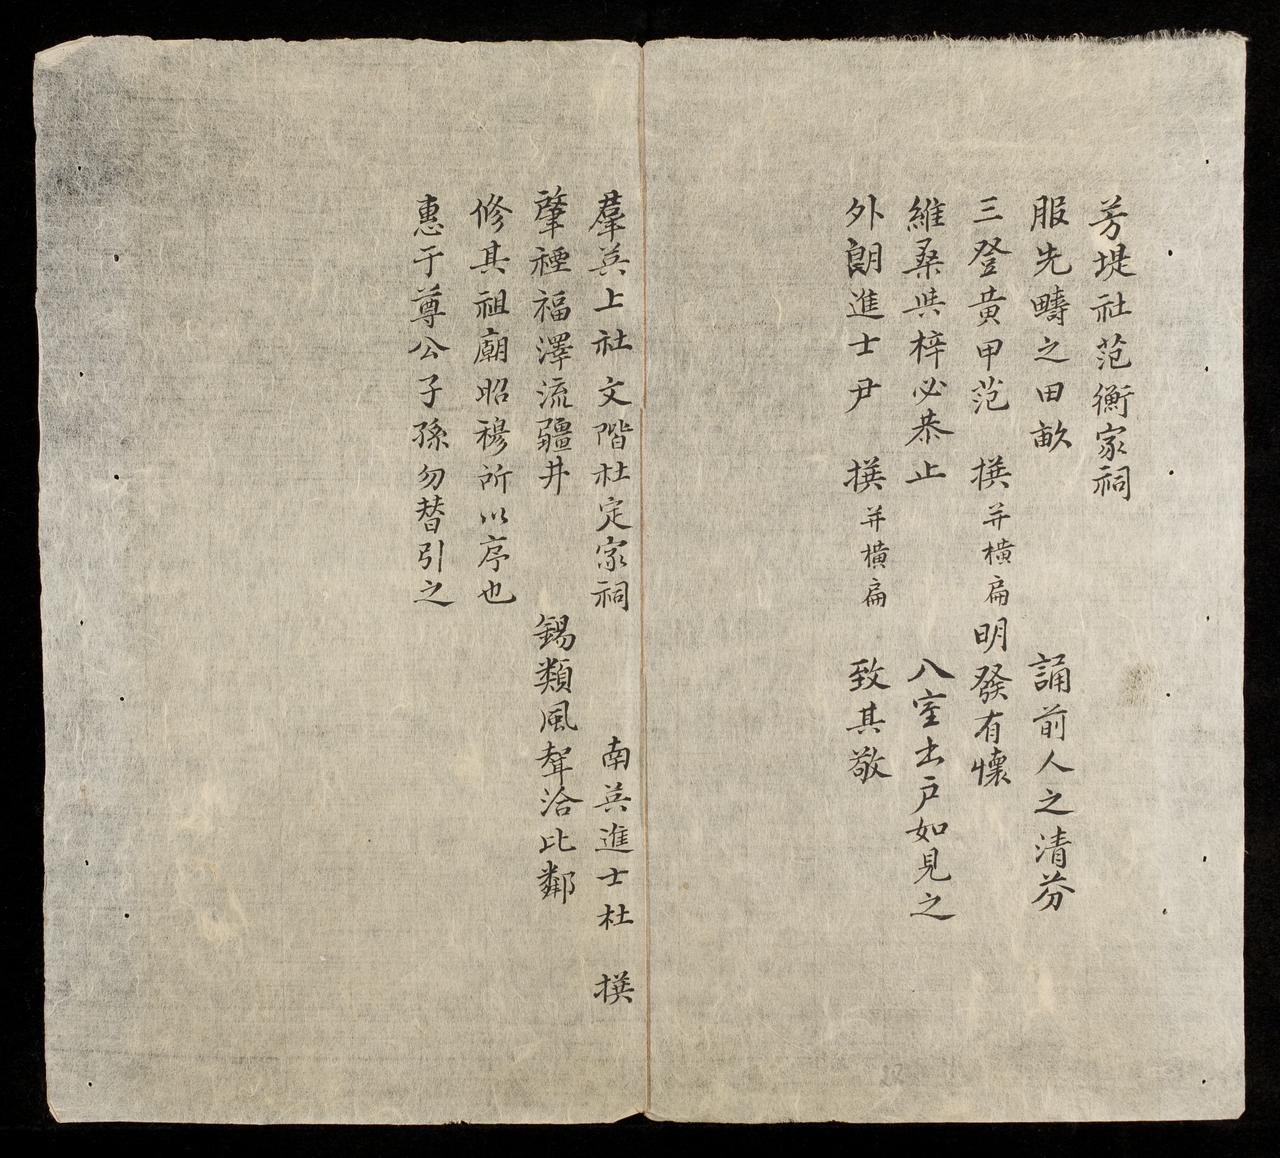 芳堤社范衡家祠
服先疇之田畝　誦前人之清芬
三登黄甲范　撰并橫扁　明發有懷
維桑與梓必恭止　入室出戶如見之
外朗進士尹　撰并橫扁　致其敬
羣英上社文階杜定家祠　南英進士杜　撰
肇禋福澤流疆井　錫類風聲洽比鄰
修其祖廟昭穆所以序也
惠于尊公子孫勿替引之